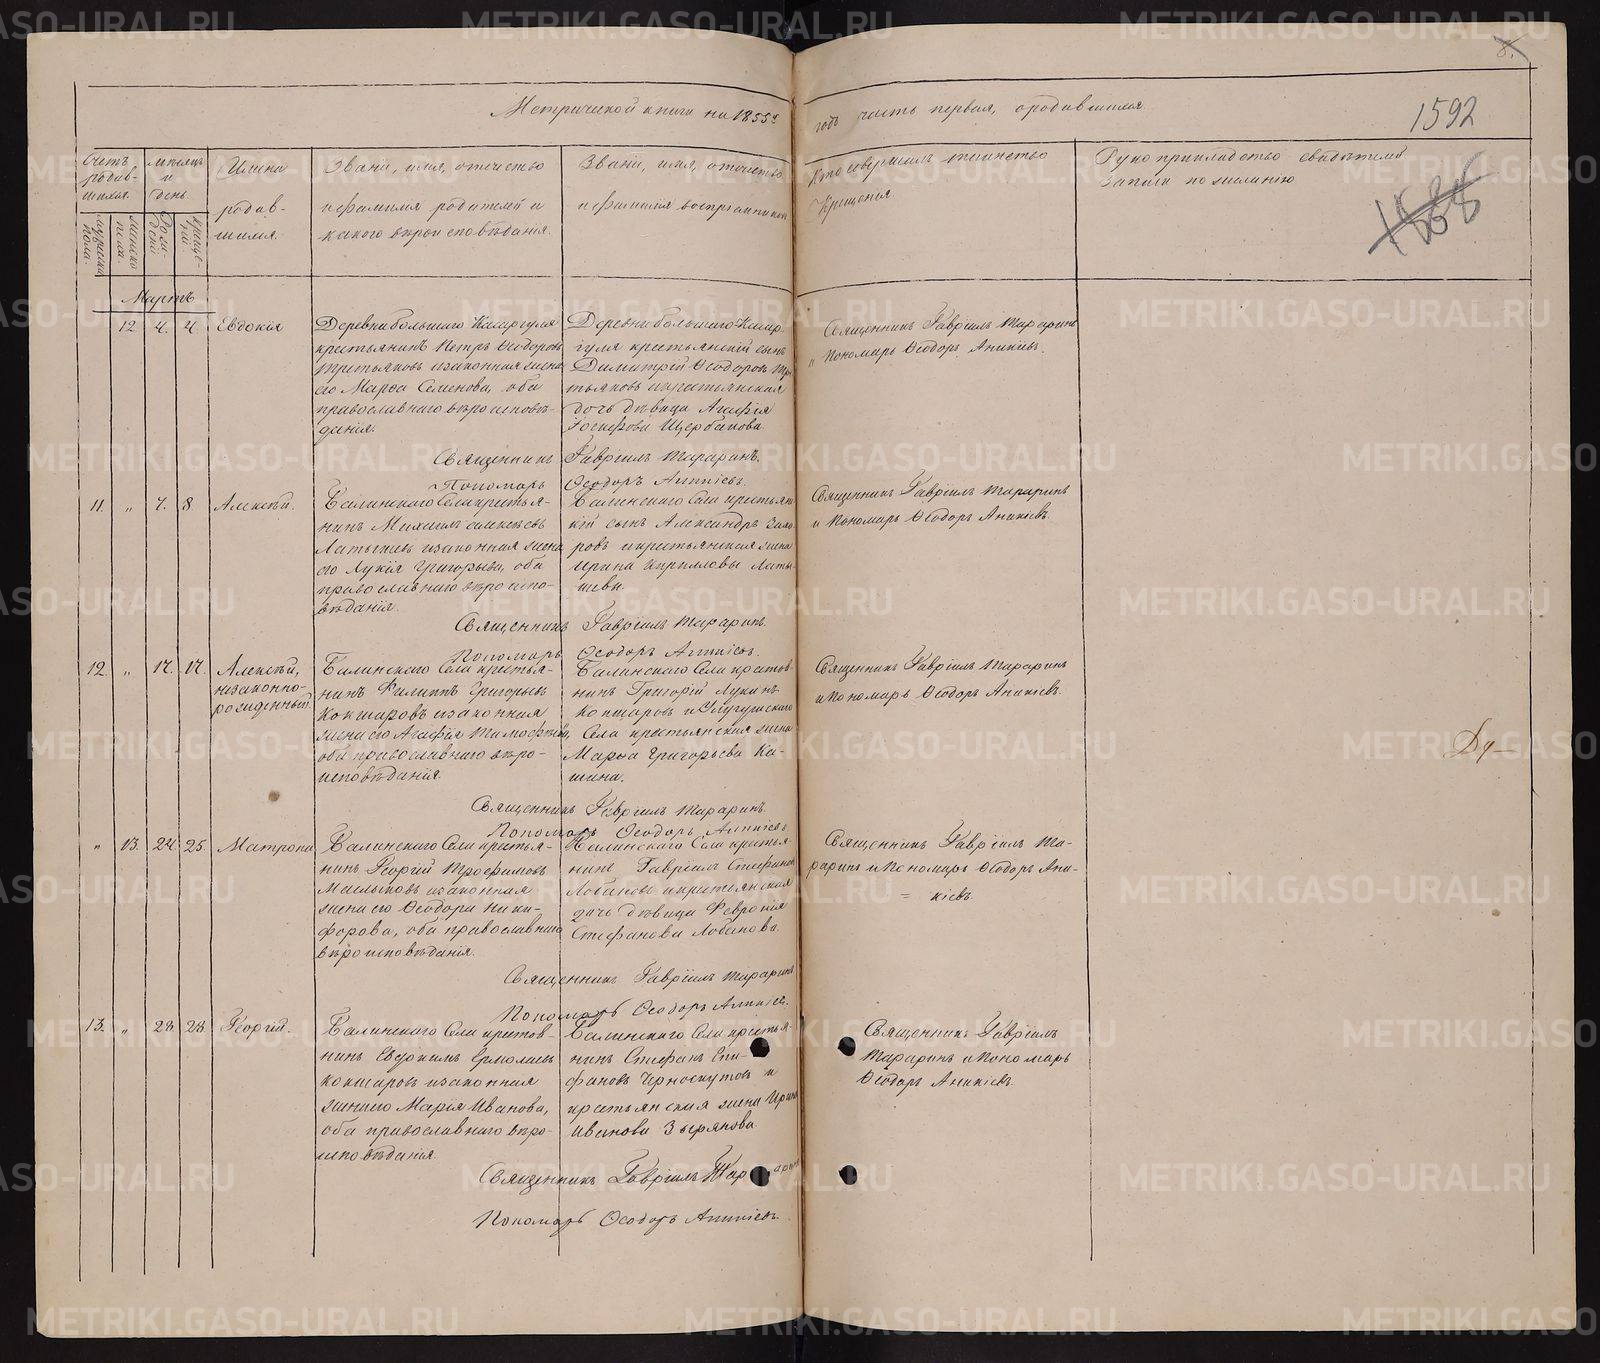 Метрической книги на 1855й годъ часть первая, о родившихся
8.
1592
1588
Счетъ родив-
шихся.
мужеска пола.
женска пола.
Мѣсяцъ и день.
рожде-
нія.
креще-
нія.
Имена
родив-
шихся.
Званіе, имя, отчество
и фамилія родителей и
какого вѣроисповѣданія.
Званіе, имя, отчество
и фамилія воспріемниковъ
Кто совершалъ таинство
Крещенія.
Рукоприкладство свидѣтелей
записи по желанію
Мартъ
12. 4. 4. Евдокія
Деревни большаго Касаргуля
крестьянинъ Петръ Ѳеодоровъ
Третьяковъ и законная жена
его Марѳа Семенова, оба
православнаго вѣроисповѣ-
данія.
Деревни большаго Касар-
гуля крестьянскій сынъ
Димитрій Ѳеодоровъ Тре-
тьяковъ и крестьянская
дочь дѣвица Агафія
Іосифова Щербакова.
Священникъ Гавріилъ Тараринъ
и Пономарь Ѳеодоръ Аникіевъ.
Священникъ Гавріилъ Тараринъ.
Пономарь Ѳеодоръ Аникіевъ.
11. „ 7. 8. Алексѣй.
Балинскаго Села крестья-
нинъ Михаилъ Алексѣевъ
Латышевъ и законная жена
его Лукія Григорьева, оба
православнаго вѣроиспо-
вѣданія.
Балинскаго Села крестьян-
кій сынъ Александръ
ровъ и крестьянская жена
Ирина Кириллова Латы-
шева.
Священникъ Гавріилъ Тараринъ
и Пономарь Ѳеодоръ Аникіевъ
Священникъ Гавріилъ Тараринъ.
Пономарь Ѳеодоръ Аникіевъ.
12. „ 17. 17. Алексѣй,
незаконно-
рожденный.
Балинскаго Села крестья-
нинъ Филиппъ Григорьевъ
Кокшаровъ и законная
жена его Агафія Тимофѣева,
оба православнаго вѣро-
исповѣданія.
Балинскаго Села крестья-
нинъ Григорій Лукинъ
Кокшаровъ и
Села крестьянская жена
Марѳа Григорьева Ка-
шина.
Священникъ Гавріилъ Тараринъ
и Пономарь Ѳеодоръ Аникіевъ.
Священникъ Гавріилъ Тараринъ.
Пономарь Ѳеодоръ Аникіевъ
„ 13. 24. 25. Матрона
Балинскаго Села крестья-
нинъ Георгій Трофимовъ
и законная
жена его Ѳеодора Ники-
форова, оба православнаго
вѣроисповѣданія.
Балинскаго Села крестья-
нинъ Гавріилъ Стефановъ
Лобановъ и крестьянская
дочь дѣвица Февронія
Стефанова Лобанова.
Священникъ Гавріилъ Та-
раринъ и Пономарь Ѳеодоръ Ани-
= кіевъ.
Священникъ Гавріилъ Тараринъ
Пономарь Ѳеодоръ Аникіевъ.
13. „ 28. 28. Георгій.
Балинскаго Села крестья-
нинъ Евдокимъ Ермолаевъ
Кокшаровъ и законная
жена его Марія Иванова,
оба православнаго вѣро-
исповѣданія.
Балинскаго Села крестья-
нинъ Стефанъ Епи-
фановъ Черноскутовъ и
крестьянская жена Ирина
Иванова Зырянова.
Священникъ Гавріилъ
Тараринъ и Пономарь
Ѳеодоръ Аникіевъ.
Священникъ Гавріилъ Тараринъ
Пономарь Ѳеодоръ Аникіевъ.
METRIKI.GASO-URAL.RU